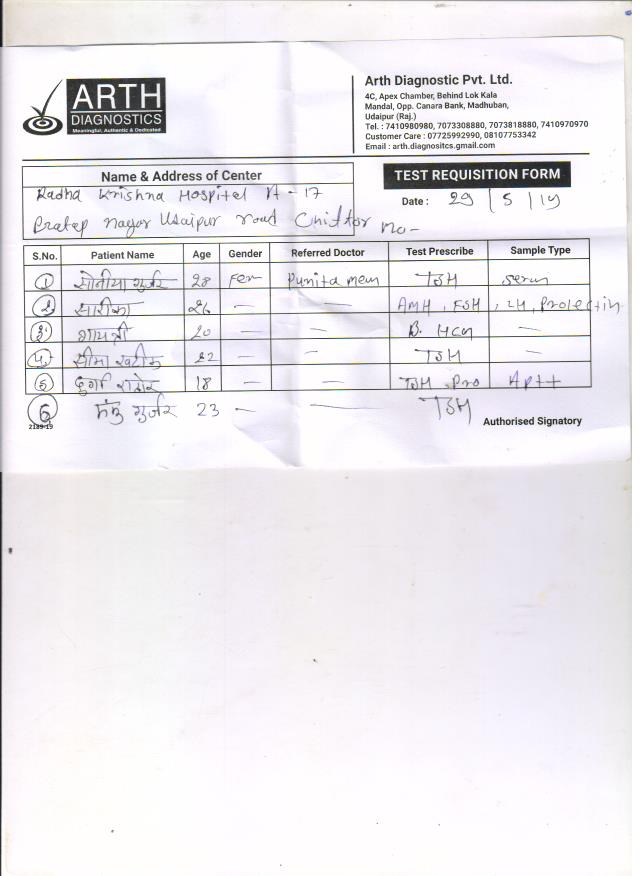 ARTH
DIAGNOSTICS
Meaningful, Authentic & Dedicated
Arth Diagnostic Pvt. Ltd.
4C, Apex Chamber, Behind Lok Kala
Mandal, Opp. Canara Bank, Madhuban,
Udaipur (Raj.)
Tel. : 7410980980, 7073308880, 7073818880, 7410970970
Customer Care : 07725992990, 08107753342
Email : arth.diagnositcs.gmail.com
Name & Address of Center
TEST REQUISITION FORM
Radha Krishna Hospital A - 17
Date : 29 / 5 / 19
Pratap nagar Usaipur road Chittor no -
S.No. Patient Name Age Gender Referred Doctor Test Prescribe Sample Type
1 सोनीया गुर्जर 28 Fem Punita mem TSH serum
2. सारीका 26 — — AMH , FSH , LH, Prolectin
3. गायत्री 20 — — B. HCG —
4. सीमा खटीक 22 — — TSH —
5 दुर्गा राठोर 18 — — TSH Pro APTT
6 गुर्जर 23 — — TSH
2189-19
Authorised Signatory